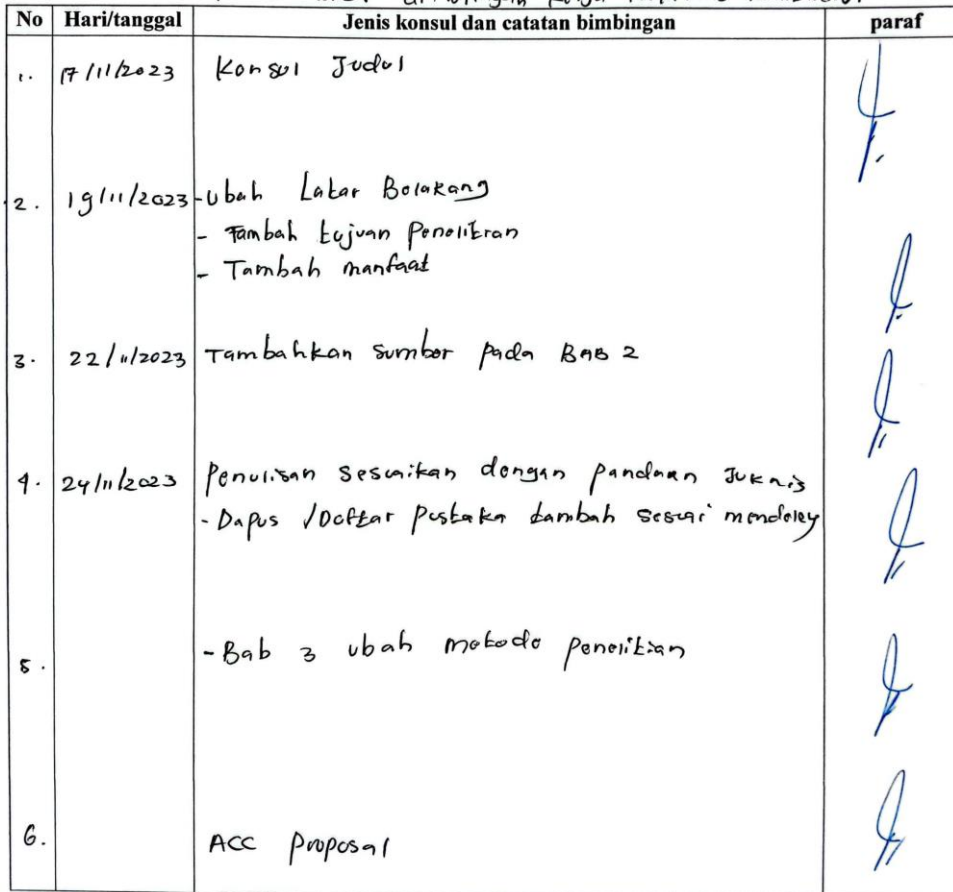 No Hari/tanggal Jenis konsul dan catatan bimbingan paraf
1. 17/11/2023 Konsul Judul
2. 19/11/2023 -Ubah Latar Belakang
- Tambah tujuan Penelitian
- Tambah manfaat
3. 22/11/2023 Tambahkan Sumber pada BAB 2
4. 24/11/2023 Penulisan sesuaikan dengan panduan Juknis
- Dapus /Daftar Pustaka tambah sesuai mendeley
5. -Bab 3 ubah metode penelitian
6. ACC Proposal